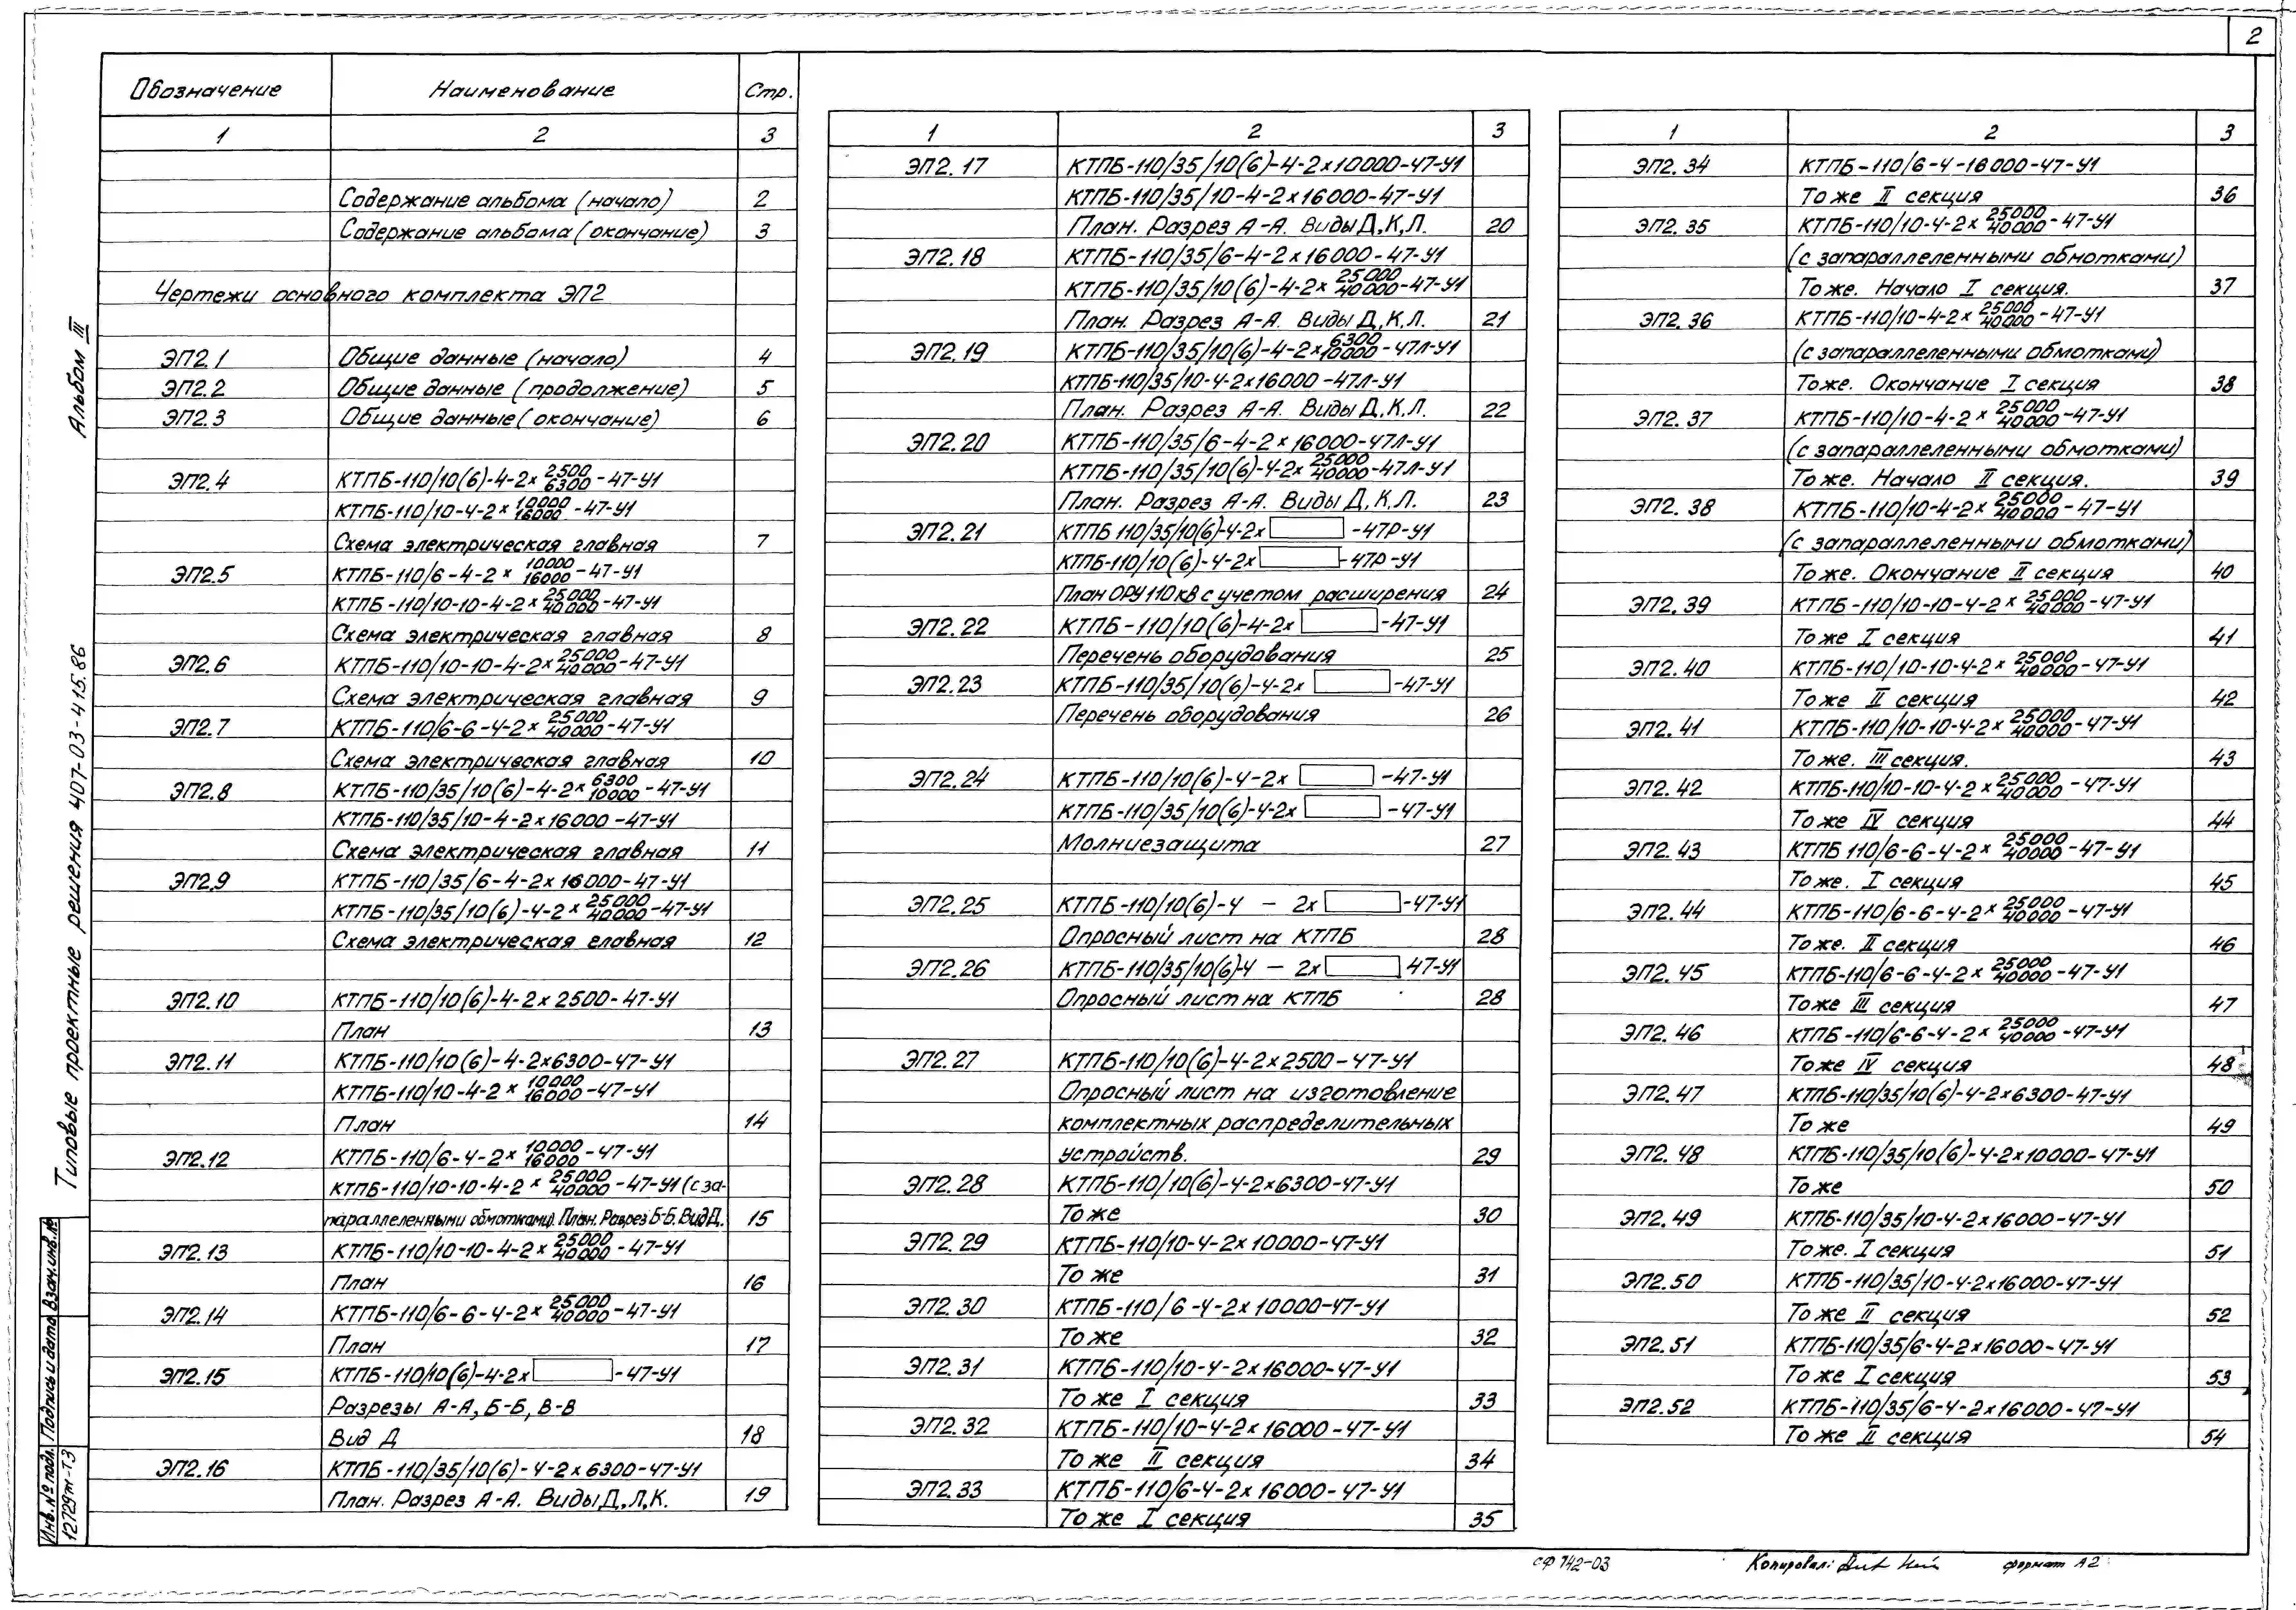 2
Обозначение Наименование Стр.
1 2 3
Содержание альбома (начало) 2
Содержание альбома (окончание) 3
Чертежи основного комплекта ЭП2
ЭП2.1 Общие данные (начало) 4
ЭП2.2 Общие данные (продолжение) 5
ЭП2.3 Общие данные (окончание) 6
ЭП2.4 КТПБ-110/10(6)-4-2х 2500/6300 -47-У1
КТПБ-110/10-4-2х 10000/16000 -47-У1
Схема электрическая главная 7
ЭП2.5 КТПБ-110/6-4-2х 10000/16000 -47-У1
КТПБ-110/10-10-4-2х 25000/40000 -47-У1
Схема электрическая главная 8
ЭП2.6 КТПБ-110/10-10-4-2х 25000/40000 -47-У1
Схема электрическая главная 9
ЭП2.7 КТПБ-110/6-6-4-2х 25000/40000 -47-У1
Схема электрическая главная 10
ЭП2.8 КТПБ-110/35/10(6)-4-2х 6300/10000 -47-У1
КТПБ-110/35/10-4-2х16000-47-У1
Схема электрическая главная 11
ЭП2.9 КТПБ-110/35/6-4-2х16000-47-У1
КТПБ-110/35/10(6)-4-2х 25000/40000 -47-У1
Схема электрическая главная 12
ЭП2.10 КТПБ-110/10(6)-4-2х2500-47-У1
План 13
ЭП2.11 КТПБ-110/10(6)-4-2х6300-47-У1
КТПБ-110/10-4-2х 10000/16000 -47-У1
План 14
ЭП2.12 КТПБ-110/6-4-2х 10000/16000 -47-У1
КТПБ-110/10-10-4-2х 25000/40000 -47-У1 (с за-
параллеленными обмотками). План. Разрез Б-Б. Вид Д. 15
ЭП2.13 КТПБ-110/10-10-4-2х 25000/40000 -47-У1
План 16
ЭП2.14 КТПБ-110/6-6-4-2х 25000/40000 -47-У1
План 17
ЭП2.15 КТПБ-110/10(6)-4-2х -47-У1
Разрезы А-А, Б-Б, В-В
Вид Д 18
ЭП2.16 КТПБ-110/35/10(6)-4-2х6300-47-У1
План. Разрез А-А. Виды Д,Л,К. 19
1 2 3
ЭП2.17 КТПБ-110/35/10(6)-4-2х10000-47-У1
КТПБ-110/35/10-4-2х16000-47-У1
План. Разрез А-А. Виды Д,К,Л. 20
ЭП2.18 КТПБ-110/35/6-4-2х16000-47-У1
КТПБ-110/35/10(6)-4-2х 25000/40000 -47-У1
План. Разрез А-А. Виды Д,К,Л. 21
ЭП2.19 КТПБ-110/35/10(6)-4-2х 6300/10000 -47Л-У1
КТПБ-110/35/10-4-2х16000-47Л-У1
План. Разрез А-А. Виды Д,К,Л. 22
ЭП2.20 КТПБ-110/35/6-4-2х16000-47Л-У1
КТПБ-110/35/10(6)-4-2х 25000/40000 -47Л-У1
План. Разрез А-А. Виды Д,К,Л. 23
ЭП2.21 КТПБ 110/35/10(6)-4-2х -47Р-У1
КТПБ-110/10(6)-4-2х -47Р-У1
План ОРУ 110 кв с учетом расширения 24
ЭП2.22 КТПБ-110/10(6)-4-2х -47-У1
Перечень оборудования 25
ЭП2.23 КТПБ-110/35/10(6)-4-2х -47-У1
Перечень оборудования 26
ЭП2.24 КТПБ-110/10(6)-4-2х -47-У1
КТПБ-110/35/10(6)-4-2х -47-У1
Молниезащита 27
ЭП2.25 КТПБ-110/10(6)-4 - 2х -47-У1
Опросный лист на КТПБ 28
ЭП2.26 КТПБ-110/35/10(6)-4 - 2х 47-У1
Опросный лист на КТПБ 28
ЭП2.27 КТПБ-110/10(6)-4-2х2500-47-У1
Опросный лист на изготовление
комплектных распределительных
устройств. 29
ЭП2.28 КТПБ-110/10(6)-4-2х6300-47-У1
То же 30
ЭП2.29 КТПБ-110/10-4-2х10000-47-У1
То же 31
ЭП2.30 КТПБ-110/6-4-2х10000-47-У1
То же 32
ЭП2.31 КТПБ-110/10-4-2х16000-47-У1
То же I секция 33
ЭП2.32 КТПБ-110/10-4-2х16000-47-У1
То же II секция 34
ЭП2.33 КТПБ-110/6-4-2х16000-47-У1
То же I секция 35
1 2 3
ЭП2.34 КТПБ-110/6-4-16000-47-У1
То же II секция 36
ЭП2.35 КТПБ-110/10-4-2х 25000/40000 -47-У1
(с запараллеленными обмотками)
То же. Начало I секция. 37
ЭП2.36 КТПБ-110/10-4-2х 25000/40000 -47-У1
(с запараллеленными обмотками)
То же. Окончание I секция 38
ЭП2.37 КТПБ-110/10-4-2х 25000/40000 -47-У1
(с запараллеленными обмотками)
То же. Начало II секция. 39
ЭП2.38 КТПБ-110/10-4-2х 25000/40000 -47-У1
(с запараллеленными обмотками)
То же. Окончание II секция 40
ЭП2.39 КТПБ-110/10-10-4-2х 25000/40000 -47-У1
То же I секция 41
ЭП2.40 КТПБ-110/10-10-4-2х 25000/40000 -47-У1
То же II секция 42
ЭП2.41 КТПБ-110/10-10-4-2х 25000/40000 -47-У1
То же. III секция. 43
ЭП2.42 КТПБ-110/10-10-4-2х 25000/40000 -47-У1
То же IV секция 44
ЭП2.43 КТПБ 110/6-6-4-2х 25000/40000 -47-У1
То же. I секция 45
ЭП2.44 КТПБ-110/6-6-4-2х 25000/40000 -47-У1
То же. II секция 46
ЭП2.45 КТПБ-110/6-6-4-2х 25000/40000 -47-У1
То же III секция 47
ЭП2.46 КТПБ-110/6-6-4-2х 25000/40000 -47-У1
То же IV секция 48
ЭП2.47 КТПБ-110/35/10(6)-4-2х6300-47-У1
То же 49
ЭП2.48 КТПБ-110/35/10(6)-4-2х10000-47-У1
То же 50
ЭП2.49 КТПБ-110/35/10-4-2х16000-47-У1
То же. I секция 51
ЭП2.50 КТПБ-110/35/10-4-2х16000-47-У1
То же II секция 52
ЭП2.51 КТПБ-110/35/6-4-2х16000-47-У1
То же I секция 53
ЭП2.52 КТПБ-110/35/6-4-2х16000-47-У1
То же II секция 54
Альбом III
Типовые проектные решения 407-03-415.86
Взам.инв.№
Подпись и дата
Инв.№ подл.
12729тм-Т3
сф 742-03 Копировал: формат А2